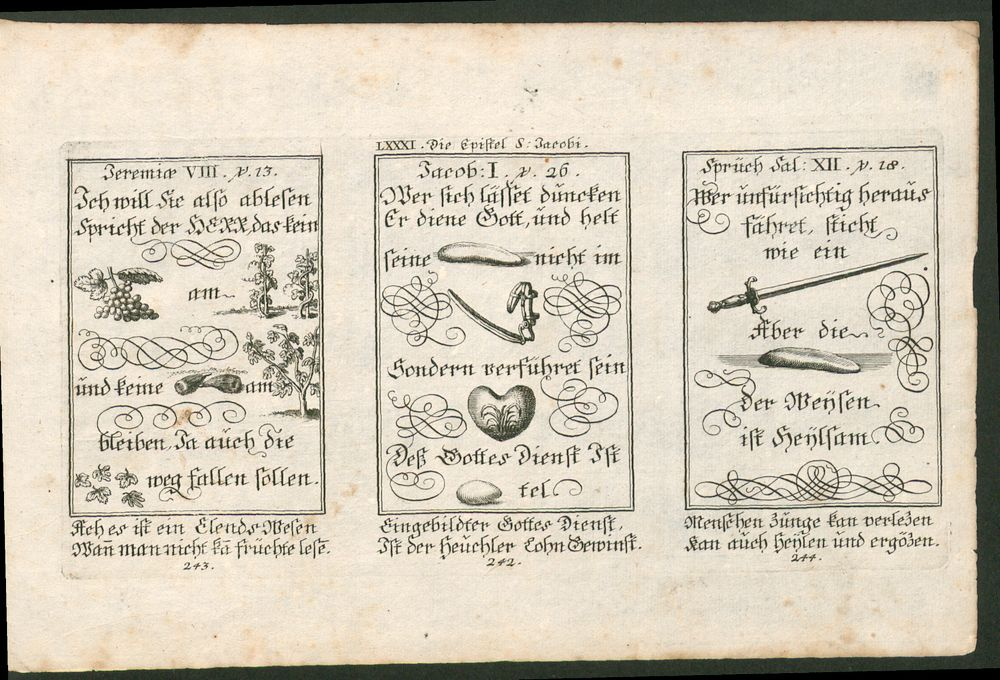 Jeremiæ VIII. v. 13.
Ich will Sie also ablesen
Spricht der HERR, das kein
am
und keine am
bleiben, Ja auch die
weg fallen sollen.
Ach es ist ein Elends-Wesen
Wañ man nicht kã früchte lesẽ.
243.
LXXXI. Die Epistel S: Jacobi.
Jacob: I. v. 26.
Wer sich lässet düncken
Er diene Gott, und helt
seine nicht im
Sondern verführet sein
Deß Gottes Dienst Ist
tel
Eingebildter Gottes Dienst,
Ist der Heuchler Lohn Gewinst.
242.
Sprüch Sal: XII. v. 18.
Wer unfürsichtig heraus
fähret, sticht
wie ein
Aber die
der Weÿsen
ist Heÿlsam
Menschen Zunge kan verlezen
Kan auch Heÿlen und ergözen.
244.